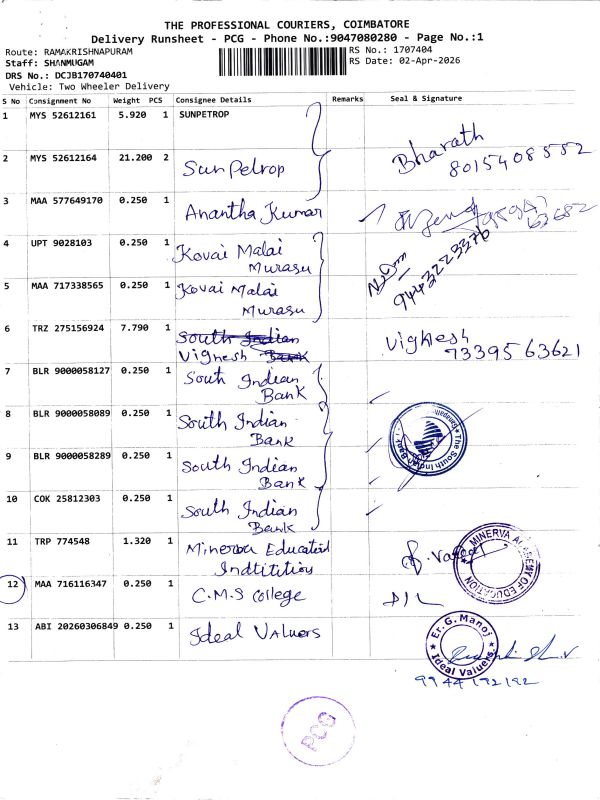 THE PROFESSIONAL COURIERS, COIMBATORE
Delivery Runsheet - PCG - Phone No.:9047080280 - Page No.:1
Route: RAMAKRISHNAPURAM
RS No.: 1707404
Staff: SHANMUGAM
RS Date: 02-Apr-2026
DRS No.: DCJB170740401
Vehicle: Two Wheeler Delivery
S No Consignment No Weight PCS Consignee Details Remarks Seal & Signature
1 MYS 52612161 5.920 1 SUNPETROP
2 MYS 52612164 21.200 2 Sun Petrop Bharath 8015408552
3 MAA 577649170 0.250 1 Anantha Kumar
4 UPT 9028103 0.250 1 Kovai Malai
Murasu
9443223376
5 MAA 717338565 0.250 1 Kovai Malai
Murasu
6 TRZ 275156924 7.790 1 South Indian
Vighesh Bank
Vighesh
7339563621
7 BLR 9000058127 0.250 1 South Indian
Bank
8 BLR 9000058089 0.250 1 South Indian
Bank
The South Indian Bank
9 BLR 9000058289 0.250 1 South Indian
Bank
10 COK 25812303 0.250 1 South Indian
Bank
11 TRP 774548 1.320 1 Minerva Educatid
Indtititios
MINERVA ACADEMY OF EDUCATION
12 MAA 716116347 0.250 1 C.M.S College
13 ABI 20260306849 0.250 1 Ideal Valuers
Er. G. Manoj
Ideal Valuers
9944192192
PCG